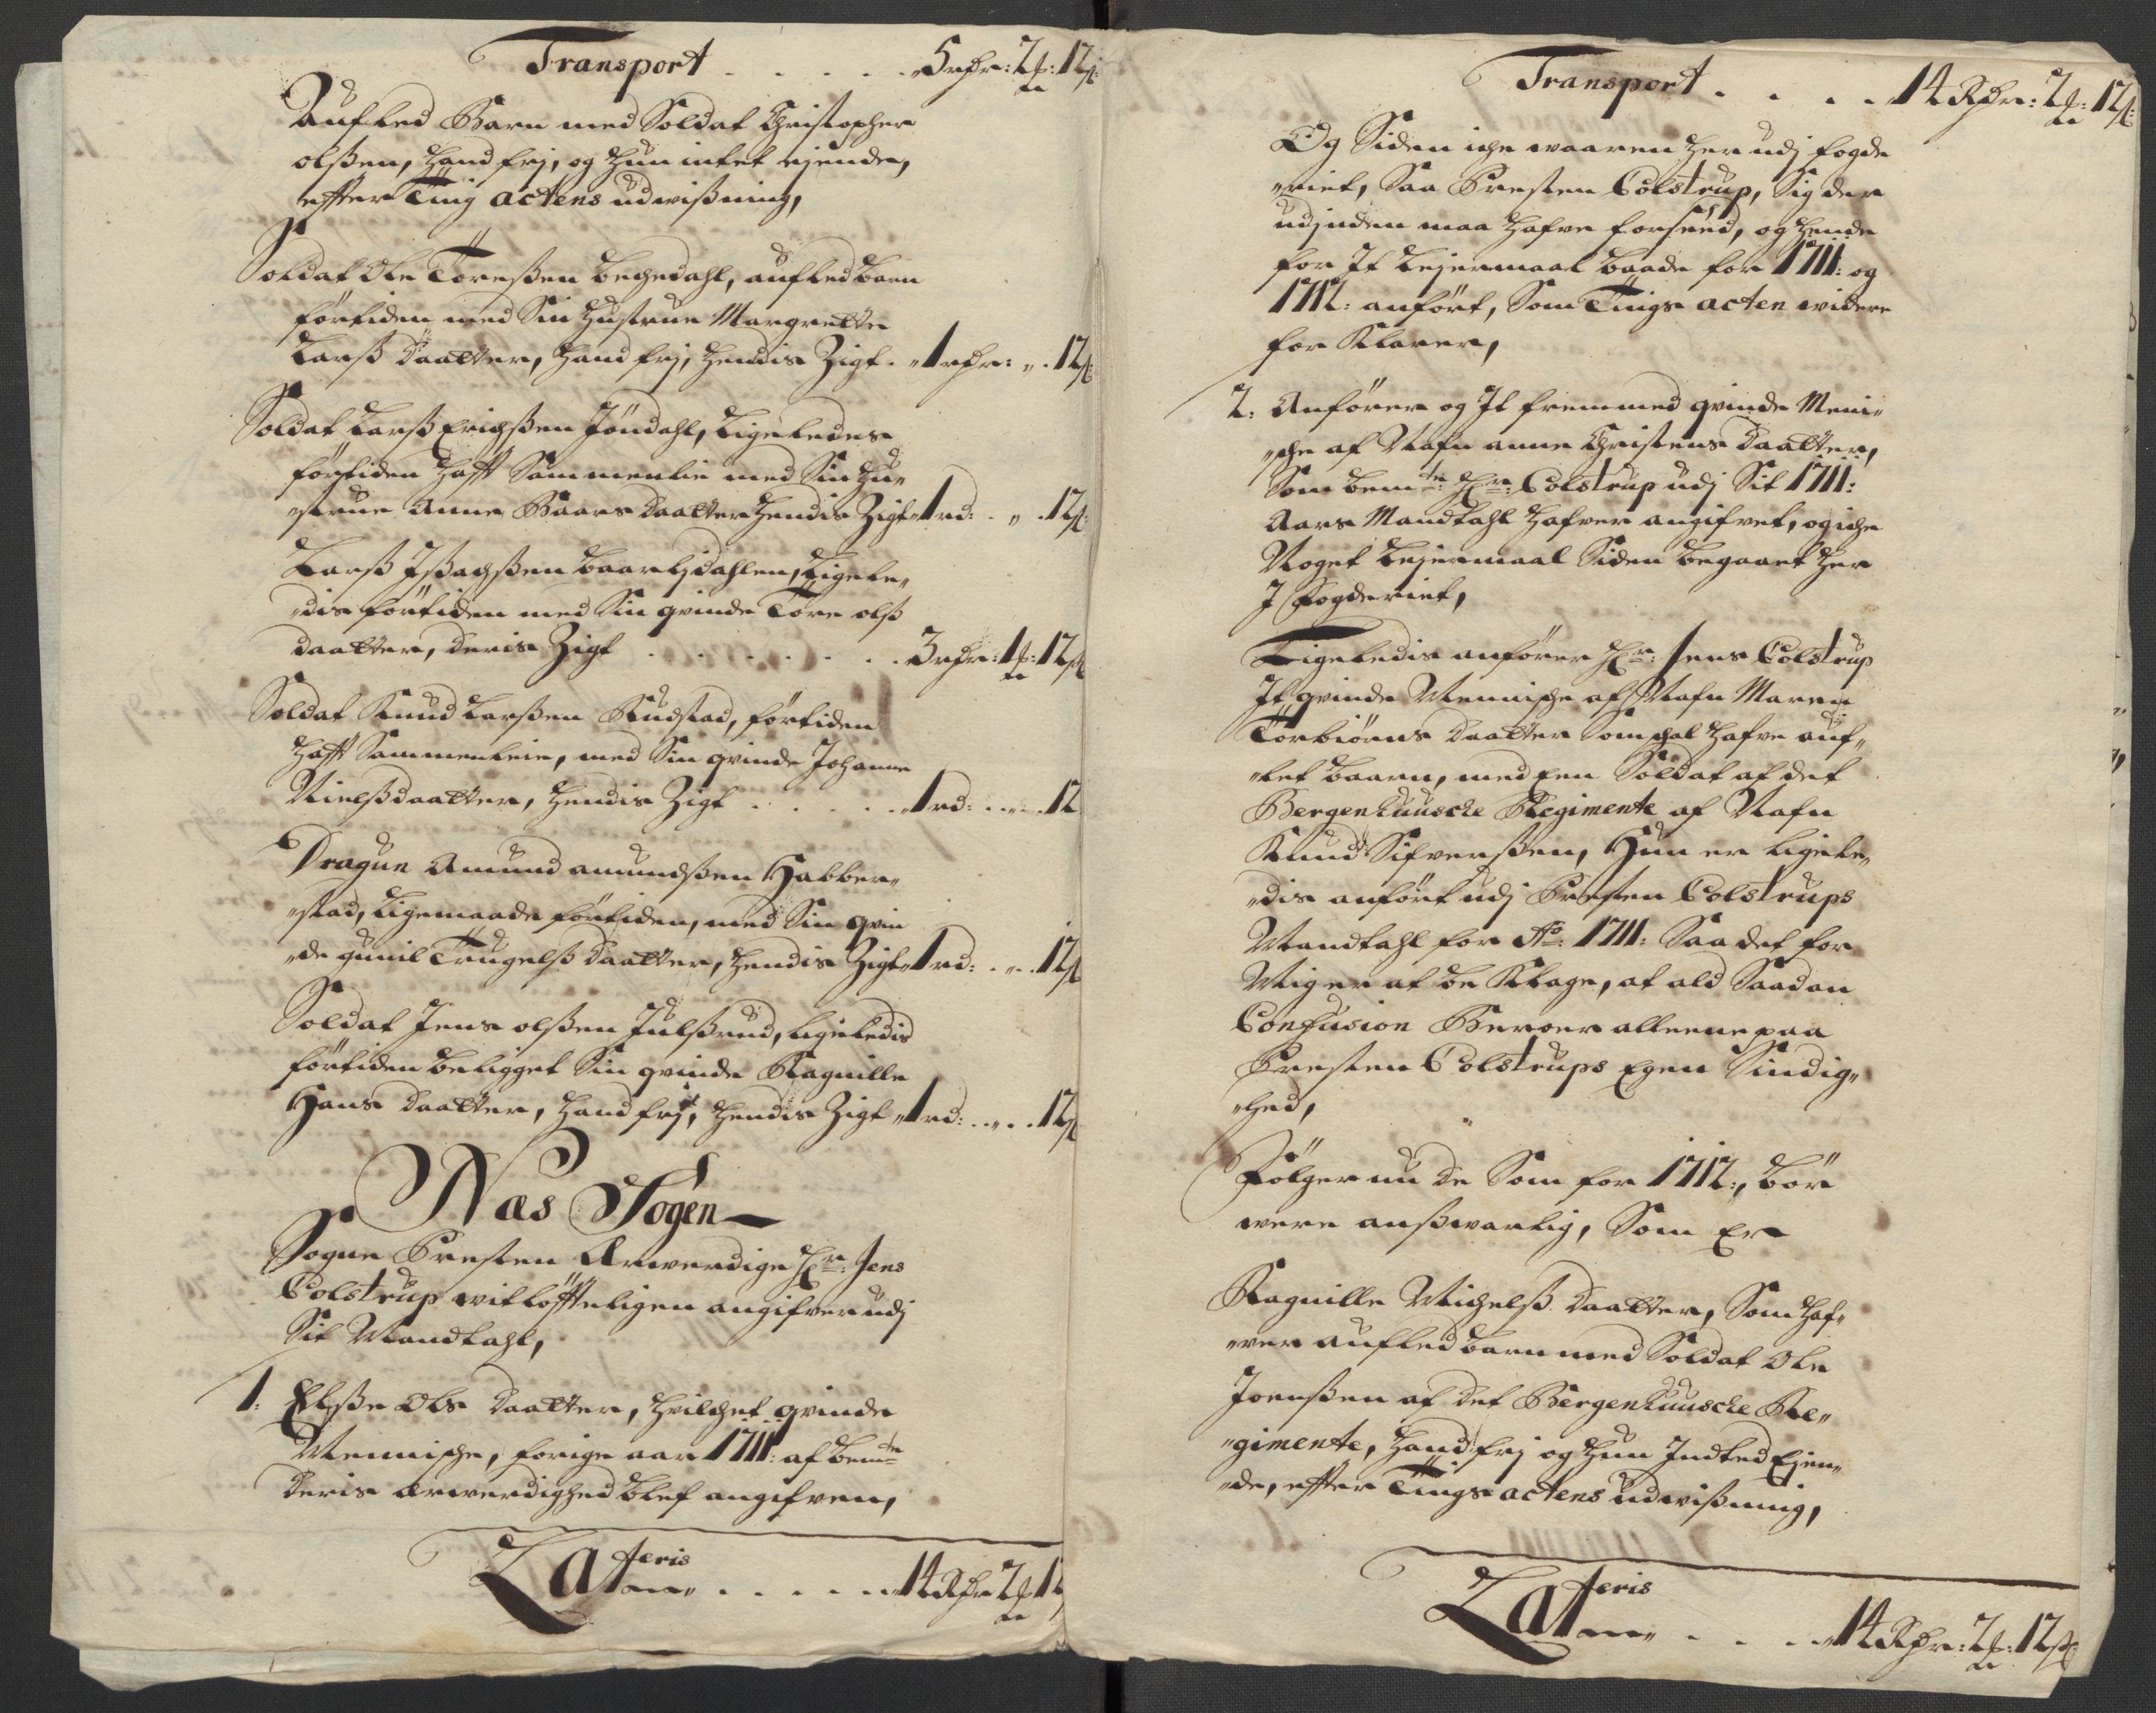 Transport . . . . . 5 rdr: 2 ₰: 12 ß:
Aufled Barn med Soldat Christopher
olßen, Hand frj, og Hun intet ejende,
effter Ting actens udwißning,
Soldat Ole Toreßen Bechedahl, aufled barn
förtiden med Sin Hustrue Margrette
Larß Daatter, Hand frj, Hendis Zigt . „ 1 rdr: „ . 12 ß:
Soldat Larß Erichßen Jöndahl, Ligeledes
förtiden hafft Sammenleie med Sin Hu„
„strue Anne Baars Daatter Hendis Zigt „ 1 rd: . „ . 12 ß:
Larß Jßachßen Baarlidahlen, Ligele„
„dis förtiden med Sin qvinde Tore olß
daatter, deris Zigt . . . . . . . 3 rdr: 1 ₰: 12 ß
Soldat Knud Larßen Rudstad, förtiden
hafft Sammenleie, med Sin qvinde Johanne
Nielßdaatter, Hendis Zigt . . . . . 1 rd: . . „ . . 12
Dragun Amund amundßen Habber„
„stad, Ligemaade förtiden, med Sin qvin
„de gunil Trugelß Daatter, Hendis Zigt „ 1 rd: . „ . 12 ß
Soldat Jens olßen Julßrud, Ligeledis
förtiden beligget Sin qvinde Ragnille
Hans Daatter, Hand frj, Hendis Zigt „ 1 rd: . . „ . . 12 ß
Næs Sogen
Sogne Presten Ærwerdige Hr: Jens
Colstrup witløffteligen angifver udj
Sit Mandtahl,
1: Elße Ols Daatter, Hvilchet qvinde
Mennische, forige aar 1711: af bemte
Deris ærwerdighed blef angifven,
Lateris . . . . . 14 Rdr 2 ₰ 12
Transport . . . . 14 Rdr: 2 ₰: 12 ß:
Og Siden iche waaren her udj fogde
„riet, Saa Presten Colstrup, Sig der
udjnden maa hafve forseed, og Hende
for Jt Lejermaal baade for 1711: og
1712: anfört, Som Tings acten widere
for Klarer,
2: Anförer og Jt fremmed qvinde Meni„
„sche af Nafn anne Christens Daatter,
Som bemte: Hr: Colstrup udj Sit 1711:
Aars Mandtahl hafver angifvet, og iche
Noget Lejermaal Siden begaaet her
J Fogderiet,
Ligeledis anfører Hr: Jens Colstrup
Jt qvinde Mennische af Nafn Maren
Torbiörns Daatter Som schal hafve auf„
„let baarn, med Een Soldat af det
Bergenhuusche Regimente af Nafn
Knud Sifverßen, Hun er ligele„
„dis anfört udj Presten Colstrups
Mandtahl for Ao: 1711: Saa det for
Mig er at be Klage, at ald Saadan
Confusion Beroer alleene paa
Presten Colstrups Egen Sindig„
„hed,
Fölger nu de Som for 1712:, bör
were anßwarlig, Som Er
Ragnille Michelß Daatter, Som haf„
„ver aufled barn med Soldat Ole
Joenßen af det Bergenhuusche Re„
„gimente, Hand frj og Hun Indted Ejen„
„de, effter Tings actens udwißning,
Lateris . . . . 14 Rdr: 2 ₰: 12 ß